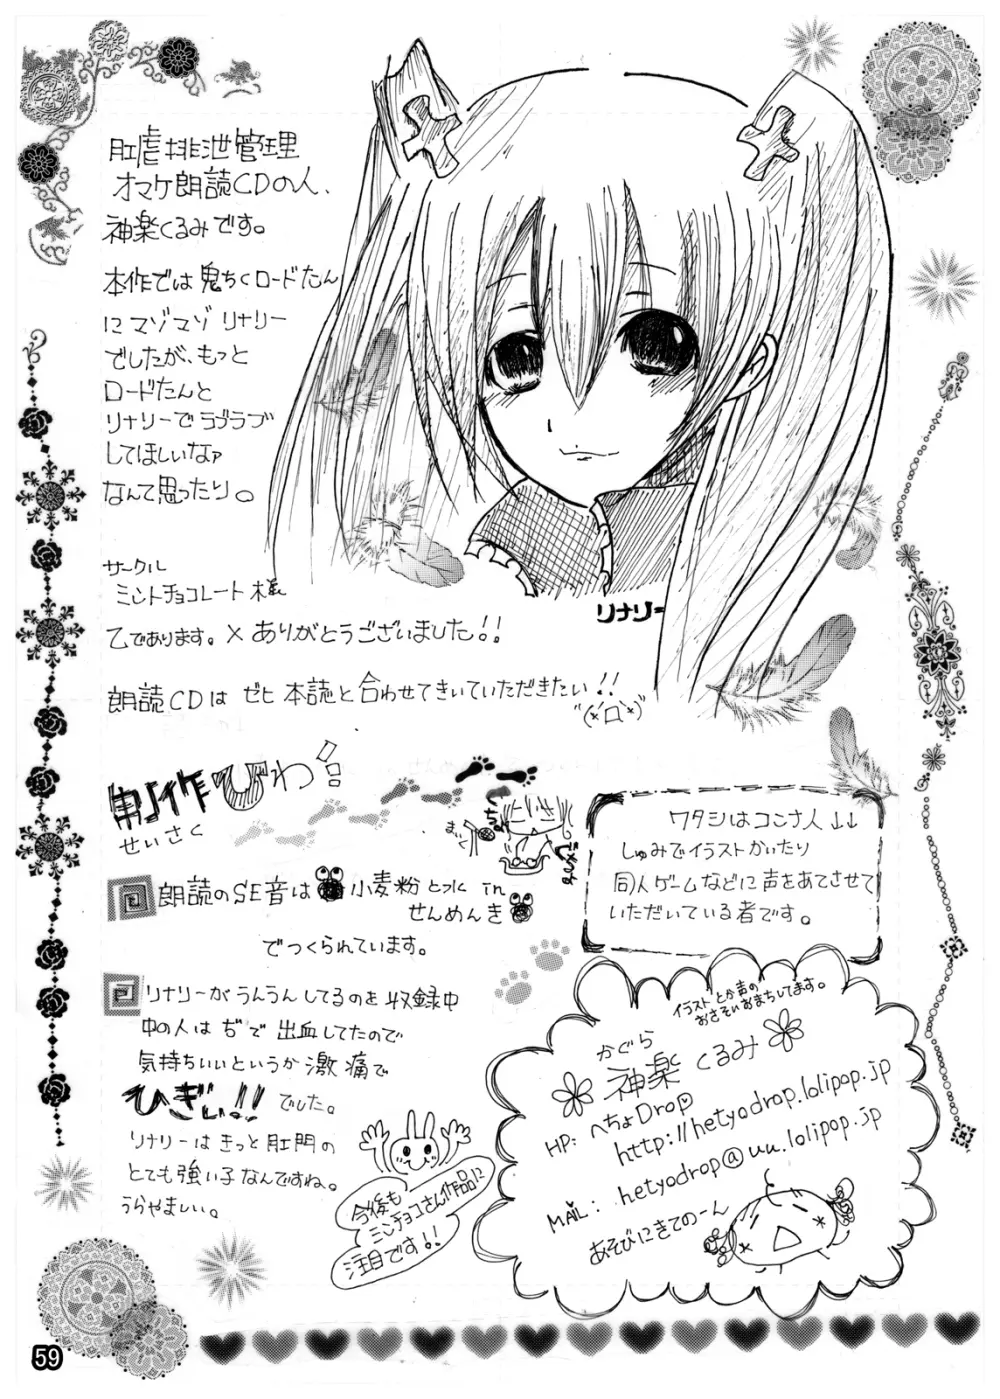 肛虐排泄管理
オマケ朗読CDの人、
神楽くるみです。
本作では鬼ちくロードたん
にマゾマゾリナリー
でしたが、もっと
ロードたんと
リナリーでラブラブ
してほしいなァ
なんて思ったり。
サークル
ミントチョコレート様
乙であります。×ありがとうございました!!
朗読CDは ゼヒ 本誌と合わせてきいていただきたい!!
リナリー
制作ひわ
せいさく
朗読のSE音は 小麦粉と水 in
せんめんき
でつくられています。
リナリーがうんうんしてるのを収録中
中の人はぢで出血してたので
気持ちいいというか激痛で
ひぎぃ!! でした。
リナリーはきっと肛門の
とても強い子なんですね。
うらやましい。
今後も
ミンチョコさん作品に
注目です!!
ワタシはコンナ人↓↓
しゅみでイラストかいたり
同人ゲームなどに声をあてさせて
いただいている者です。
イラストとか声の
おさそいおまちしてます。
かぐら
神楽くるみ
HP: へちょDrop
http://hetyodrop.lolipop.jp
MAIL: hetyodrop@uu.lolipop.jp
あそびにきてのーん
59